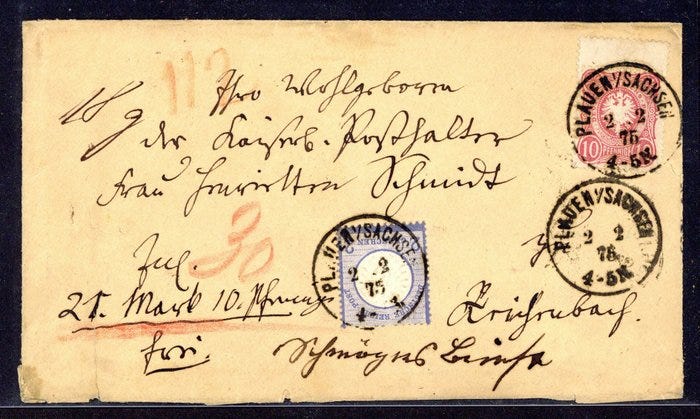 112
Ihro Wohlgeboren
der Kaiserl. Posthalter
Frau Henrietten Schmidt
30
Inl.
21. Mark 10. Pfennige
frei.
Reichenbach.
PLAUEN I/SACHSEN
2 2
75
4-5N
10 PFENNIGE
PLAUEN I/SACHSEN
2 2
75
4-5N
PLAUEN I/SACHSEN
2 2
75